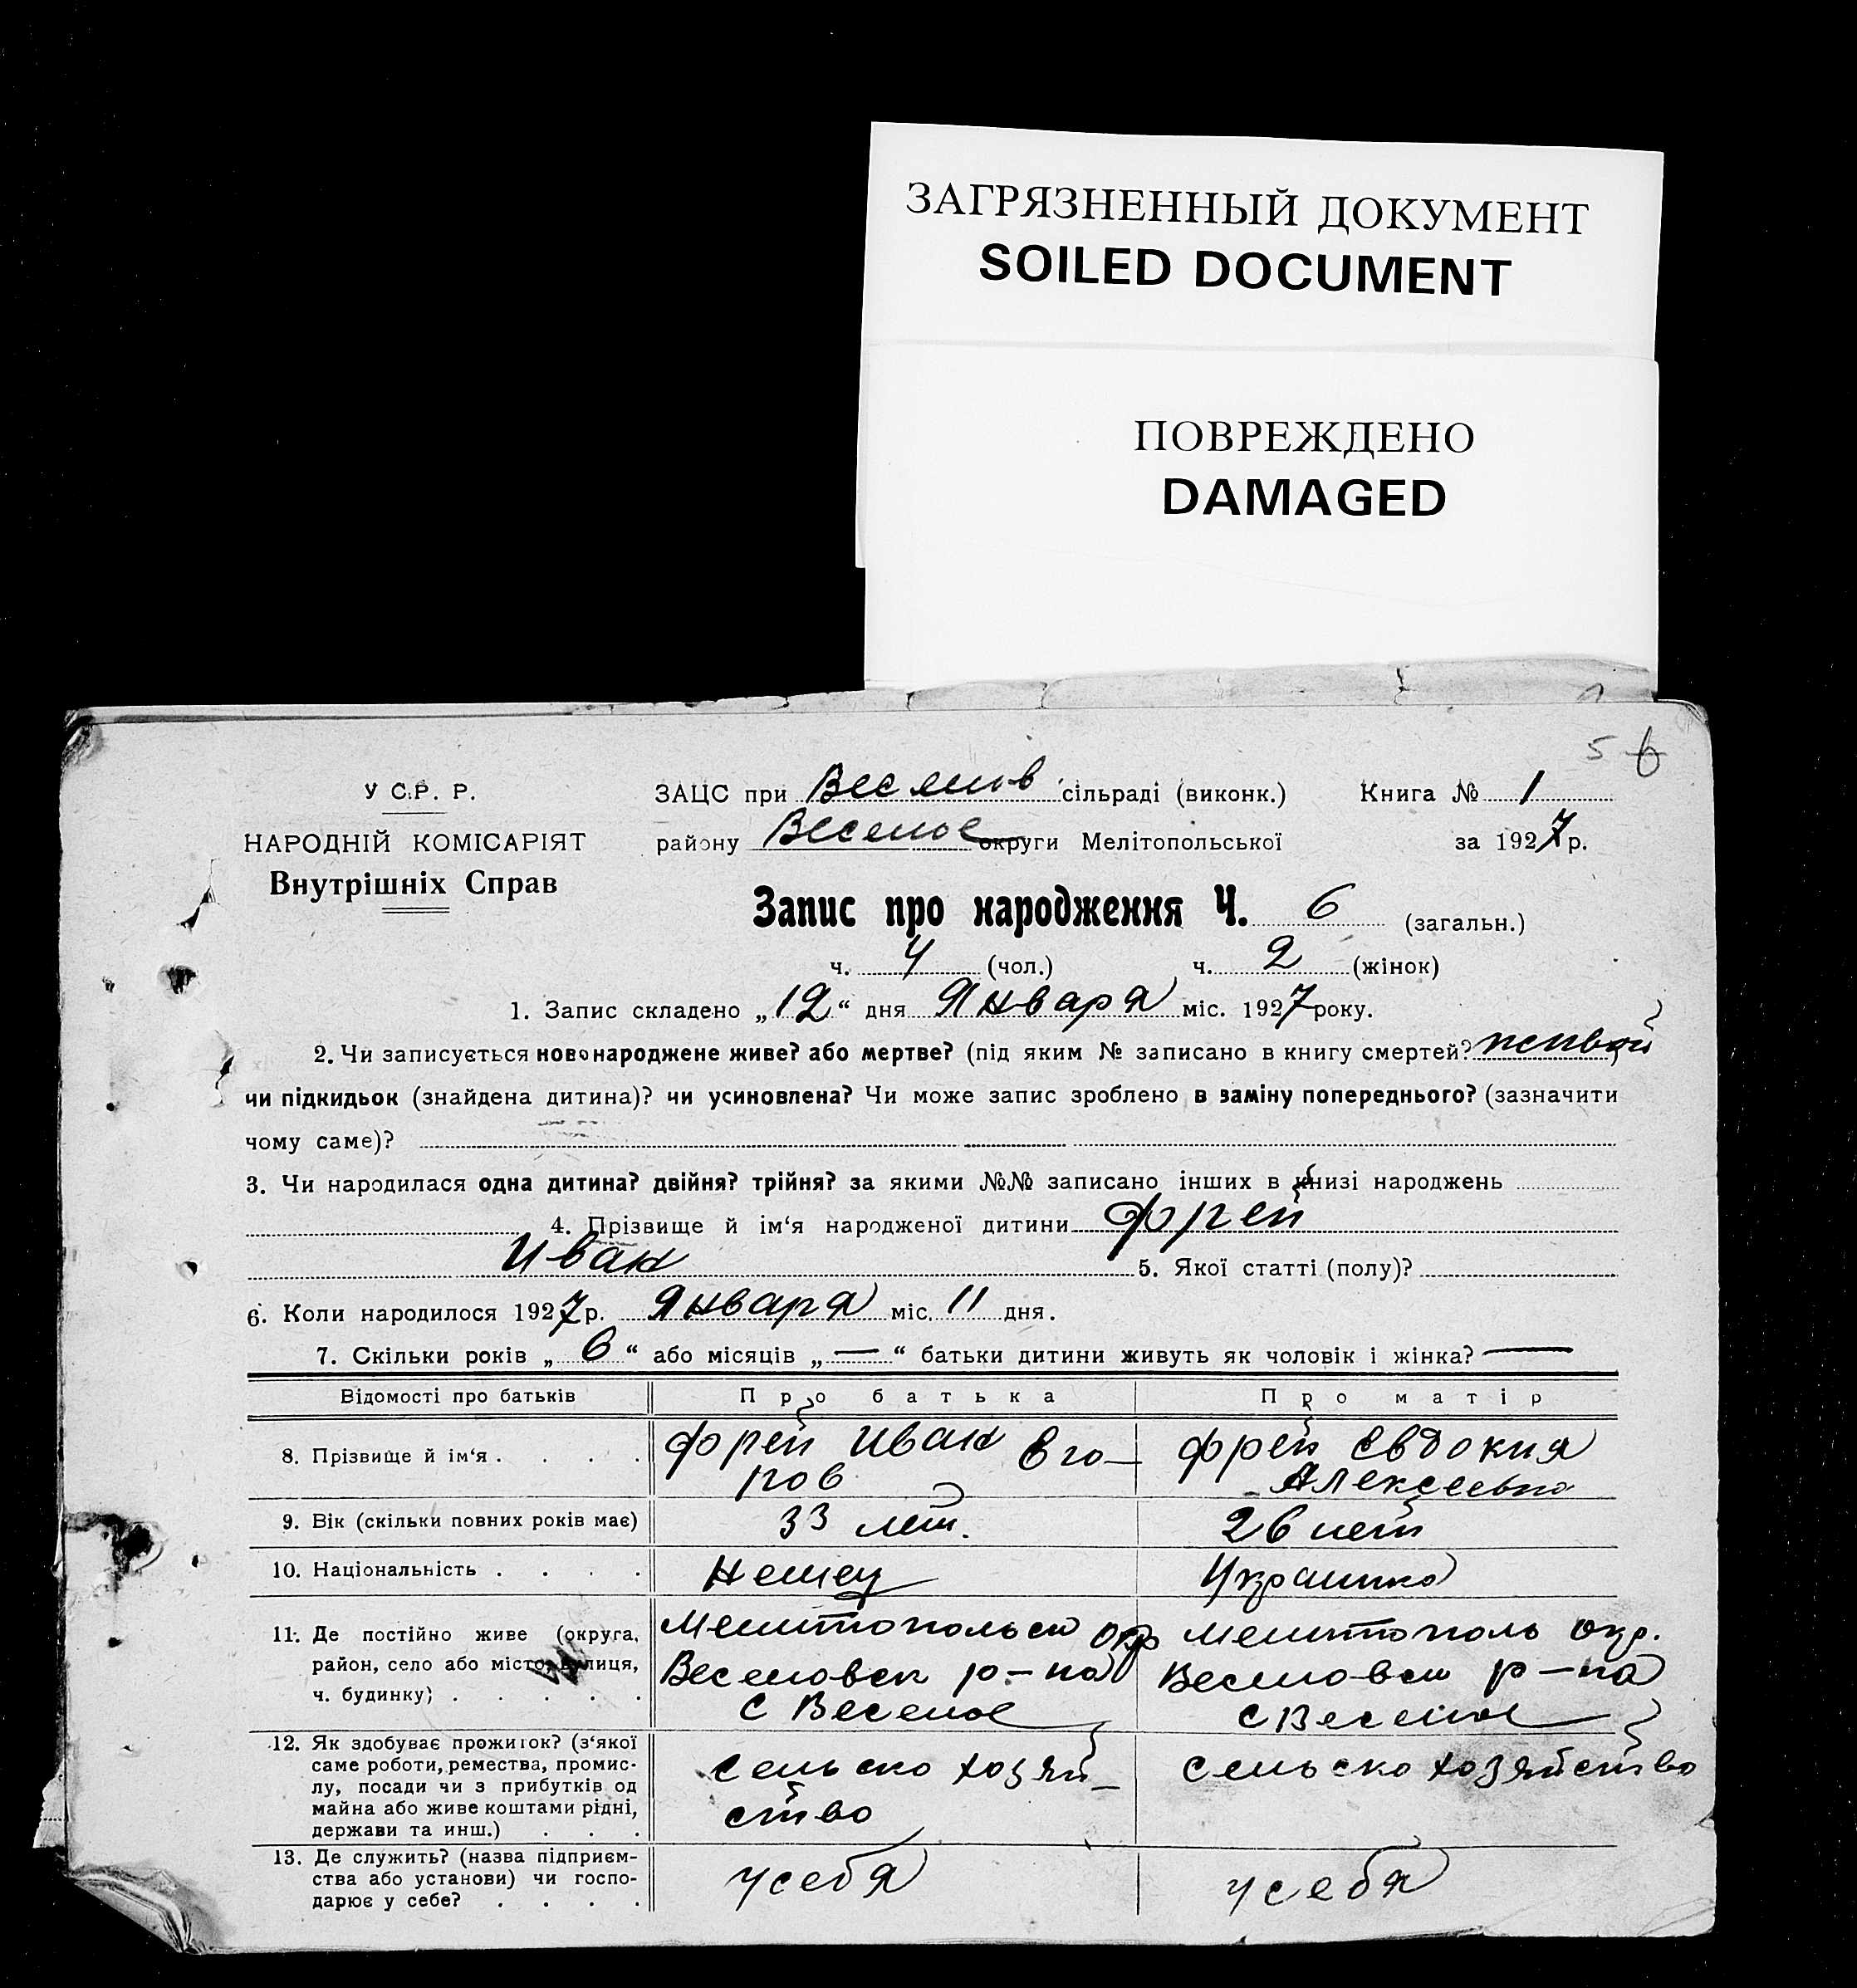 ЗАГРЯЗНЕННЫЙ ДОКУМЕНТ
SOILED DOCUMENT
ПОВРЕЖДЕНО
DAMAGED
5 6
У С.Р. Р.
НАРОДНІЙ КОМІСАРІЯТ
Внутрішніх Справ
ЗАЦС при Веселов сільраді (виконк.) Книга № 1
району Веселое округи Мелітопольської за 1927 р.
Запис про народження Ч. 6 (загальн.)
ч. 4 (чол.) ч. 2 (жінок)
1. Запис складено „12“ дня Января міс. 1927 року.
2. Чи записується новонароджене живе? або мертве? (під яким № записано в книгу смертей? живой
чи підкидьок (знайдена дитина)? чи усиновлена? Чи може запис зроблено в заміну попереднього? (зазначити
чому саме)?
3. Чи народилася одна дитина? двійня? трійня? за якими №№ записано інших в книзі народжень
4. Прізвище й ім‘я народженої дитини Фрей
Иван 5. Якої статті (полу)?
6. Коли народилося 1927 р. Января міс. 11 дня.
7. Скільки років „6“ або місяців „—“ батьки дитини живуть як чоловік і жінка? —
Відомості про батьків Про батька Про матір
8. Прізвище й ім‘я . . . . Фрей Иван Его-
ров Фрей Евдокия
Алексеевна
9. Вік (скільки повних років має) 33 лет. 26 лет
10. Національність . . . . Немец Украинка
11. Де постійно живе (округа,
район, село або місто, вулиця,
ч. будинку) . . . . . Мелитопольск Окр
Веселовск р-на
С Веселое Мелитополь Окр.
Веселовск р-на
С Веселое
12. Як здобуває прожиток? (з‘якої
саме роботи, ремества, промис-
лу, посади чи з прибутків од
майна або живе коштами рідні,
держави та инш.) . . . Сельско хозяй-
ство Сельско хозяйство
13. Де служить? (назва підприєм-
ства або установи) чи госпо-
дарює у себе? . . . . у себя у себя